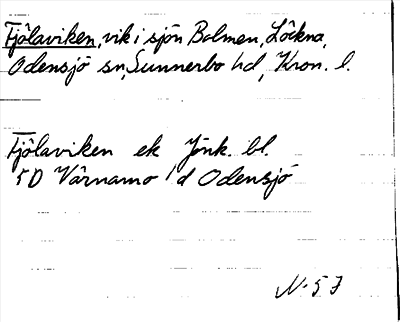 Fjölaviken, vik i sjön Bolmen, Löckna,
Odensjö sn, Sunnerbo hd, Kron. l.
Fjölaviken ek Jönk. bl.
5D Värnamo 1d Odensjö
N-57